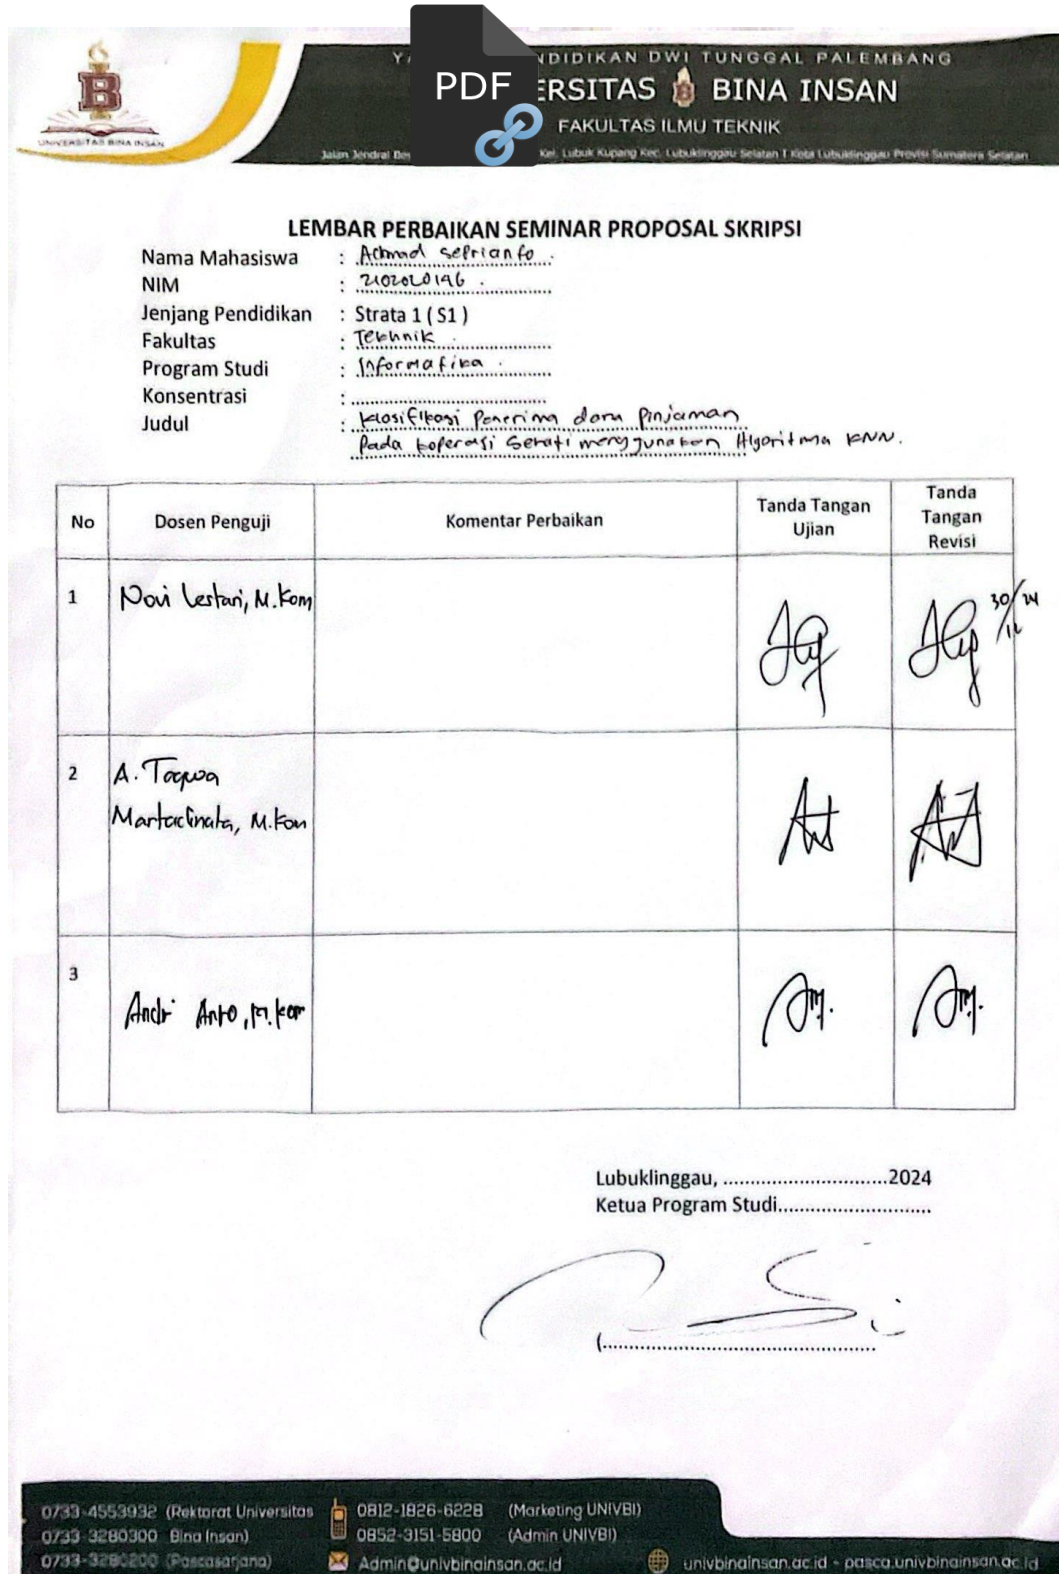 PDF
NDIDIKAN DWI TUNGGAL PALEMBANG
ERSITAS BINA INSAN
B
UNIVERSITAS BINA INSAN
FAKULTAS ILMU TEKNIK
Jalan Jendral Kel. Lubuk Kupang Kec. Lubuklinggau Selatan I Kota Lubuklinggau Provisi Sumatera Selatan
LEMBAR PERBAIKAN SEMINAR PROPOSAL SKRIPSI
Nama Mahasiswa : Achmad Seprianto
NIM : 2102020196
Jenjang Pendidikan : Strata 1 ( S1 )
Fakultas : Tekhnik
Program Studi : Informatika
Konsentrasi :
Judul : Klasifikasi Penerima dana Pinjaman
Pada koperasi Sehati menggunakan Algoritma KNN.
No Dosen Penguji Komentar Perbaikan Tanda Tangan Ujian Tanda Tangan Revisi
1 Novi Lestari, M.Kom
30/12 24
2 A. Taqwa
Martadinata, M.Kom
3 Andri Anto, M.Kom
Lubuklinggau, ..............................2024
Ketua Program Studi............................
0733-4553932 (Rektorat Universitas 0812-1826-6228 (Marketing UNIVBI)
0733-3280300 Bina Insan) 0852-3151-5800 (Admin UNIVBI)
0733-3280200 (Pascasarjana) Admin@univbinainsan.ac.id univbinainsan.ac.id - pasca.univbinainsan.ac.id